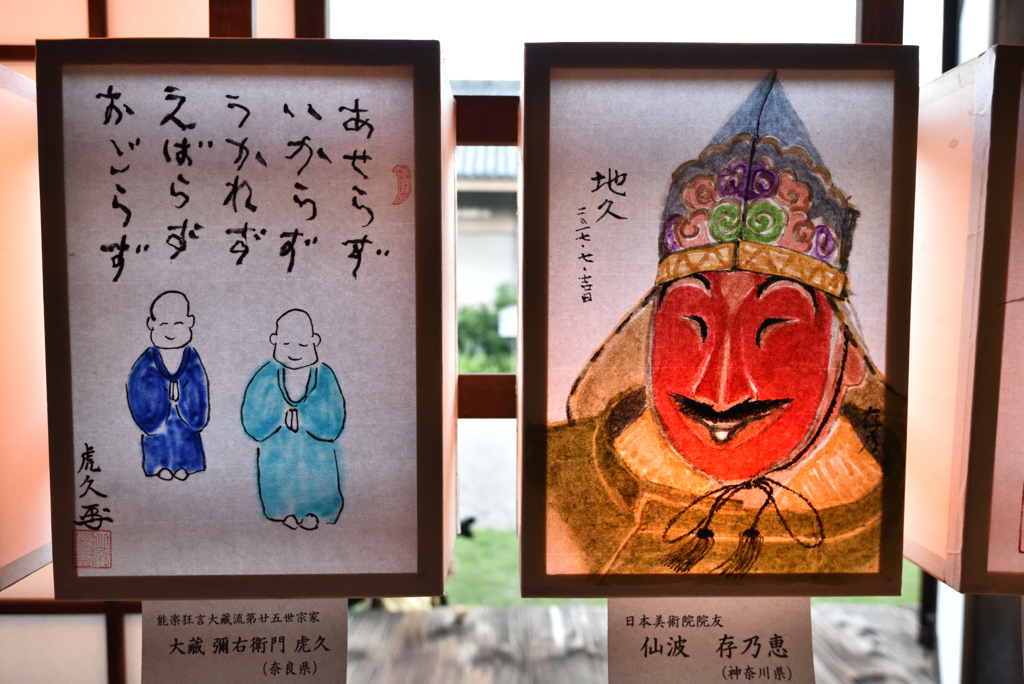 あせらず
いからず
うかれず
えばらず
おごらず
虎久
能楽狂言大蔵流第廿五世宗家
大蔵 彌右衛門 虎久
(奈良県)
地久
二〇一七・七・十四日
日本美術院院友
仙波 存乃恵
(神奈川県)